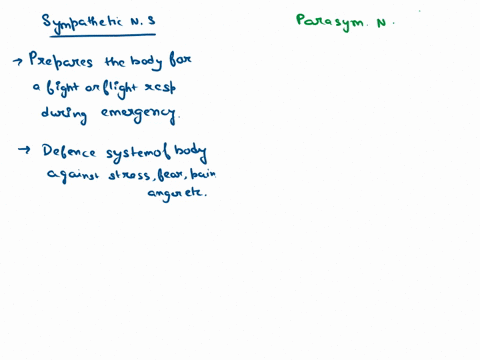 Sympathetic N.S
Parasym. N.
→ Prepares the body for
a fight or flight resp
during emergency.
→ Defence system of body
against stress, fear, pain
anger etc.